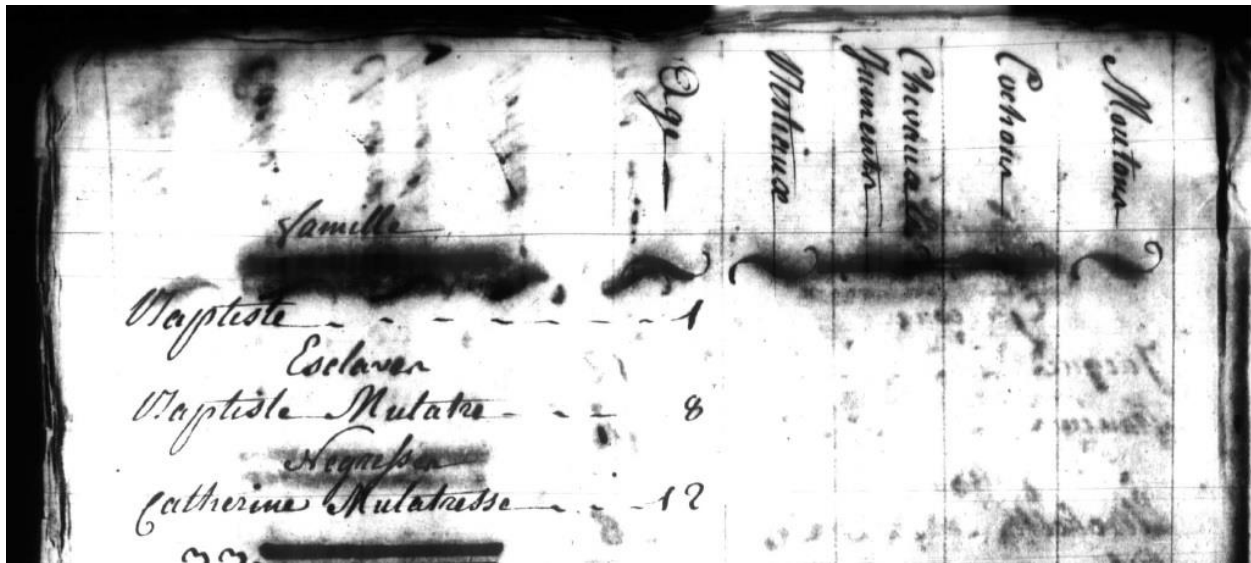 Age
Bestiaux
Chevaux &
Juments
Cochons
Moutons
famille
Baptiste - - - - - - 1
Esclaves
Baptiste Mulatre - - - 8
Negresses
Catherine Mulatresse - - - 12